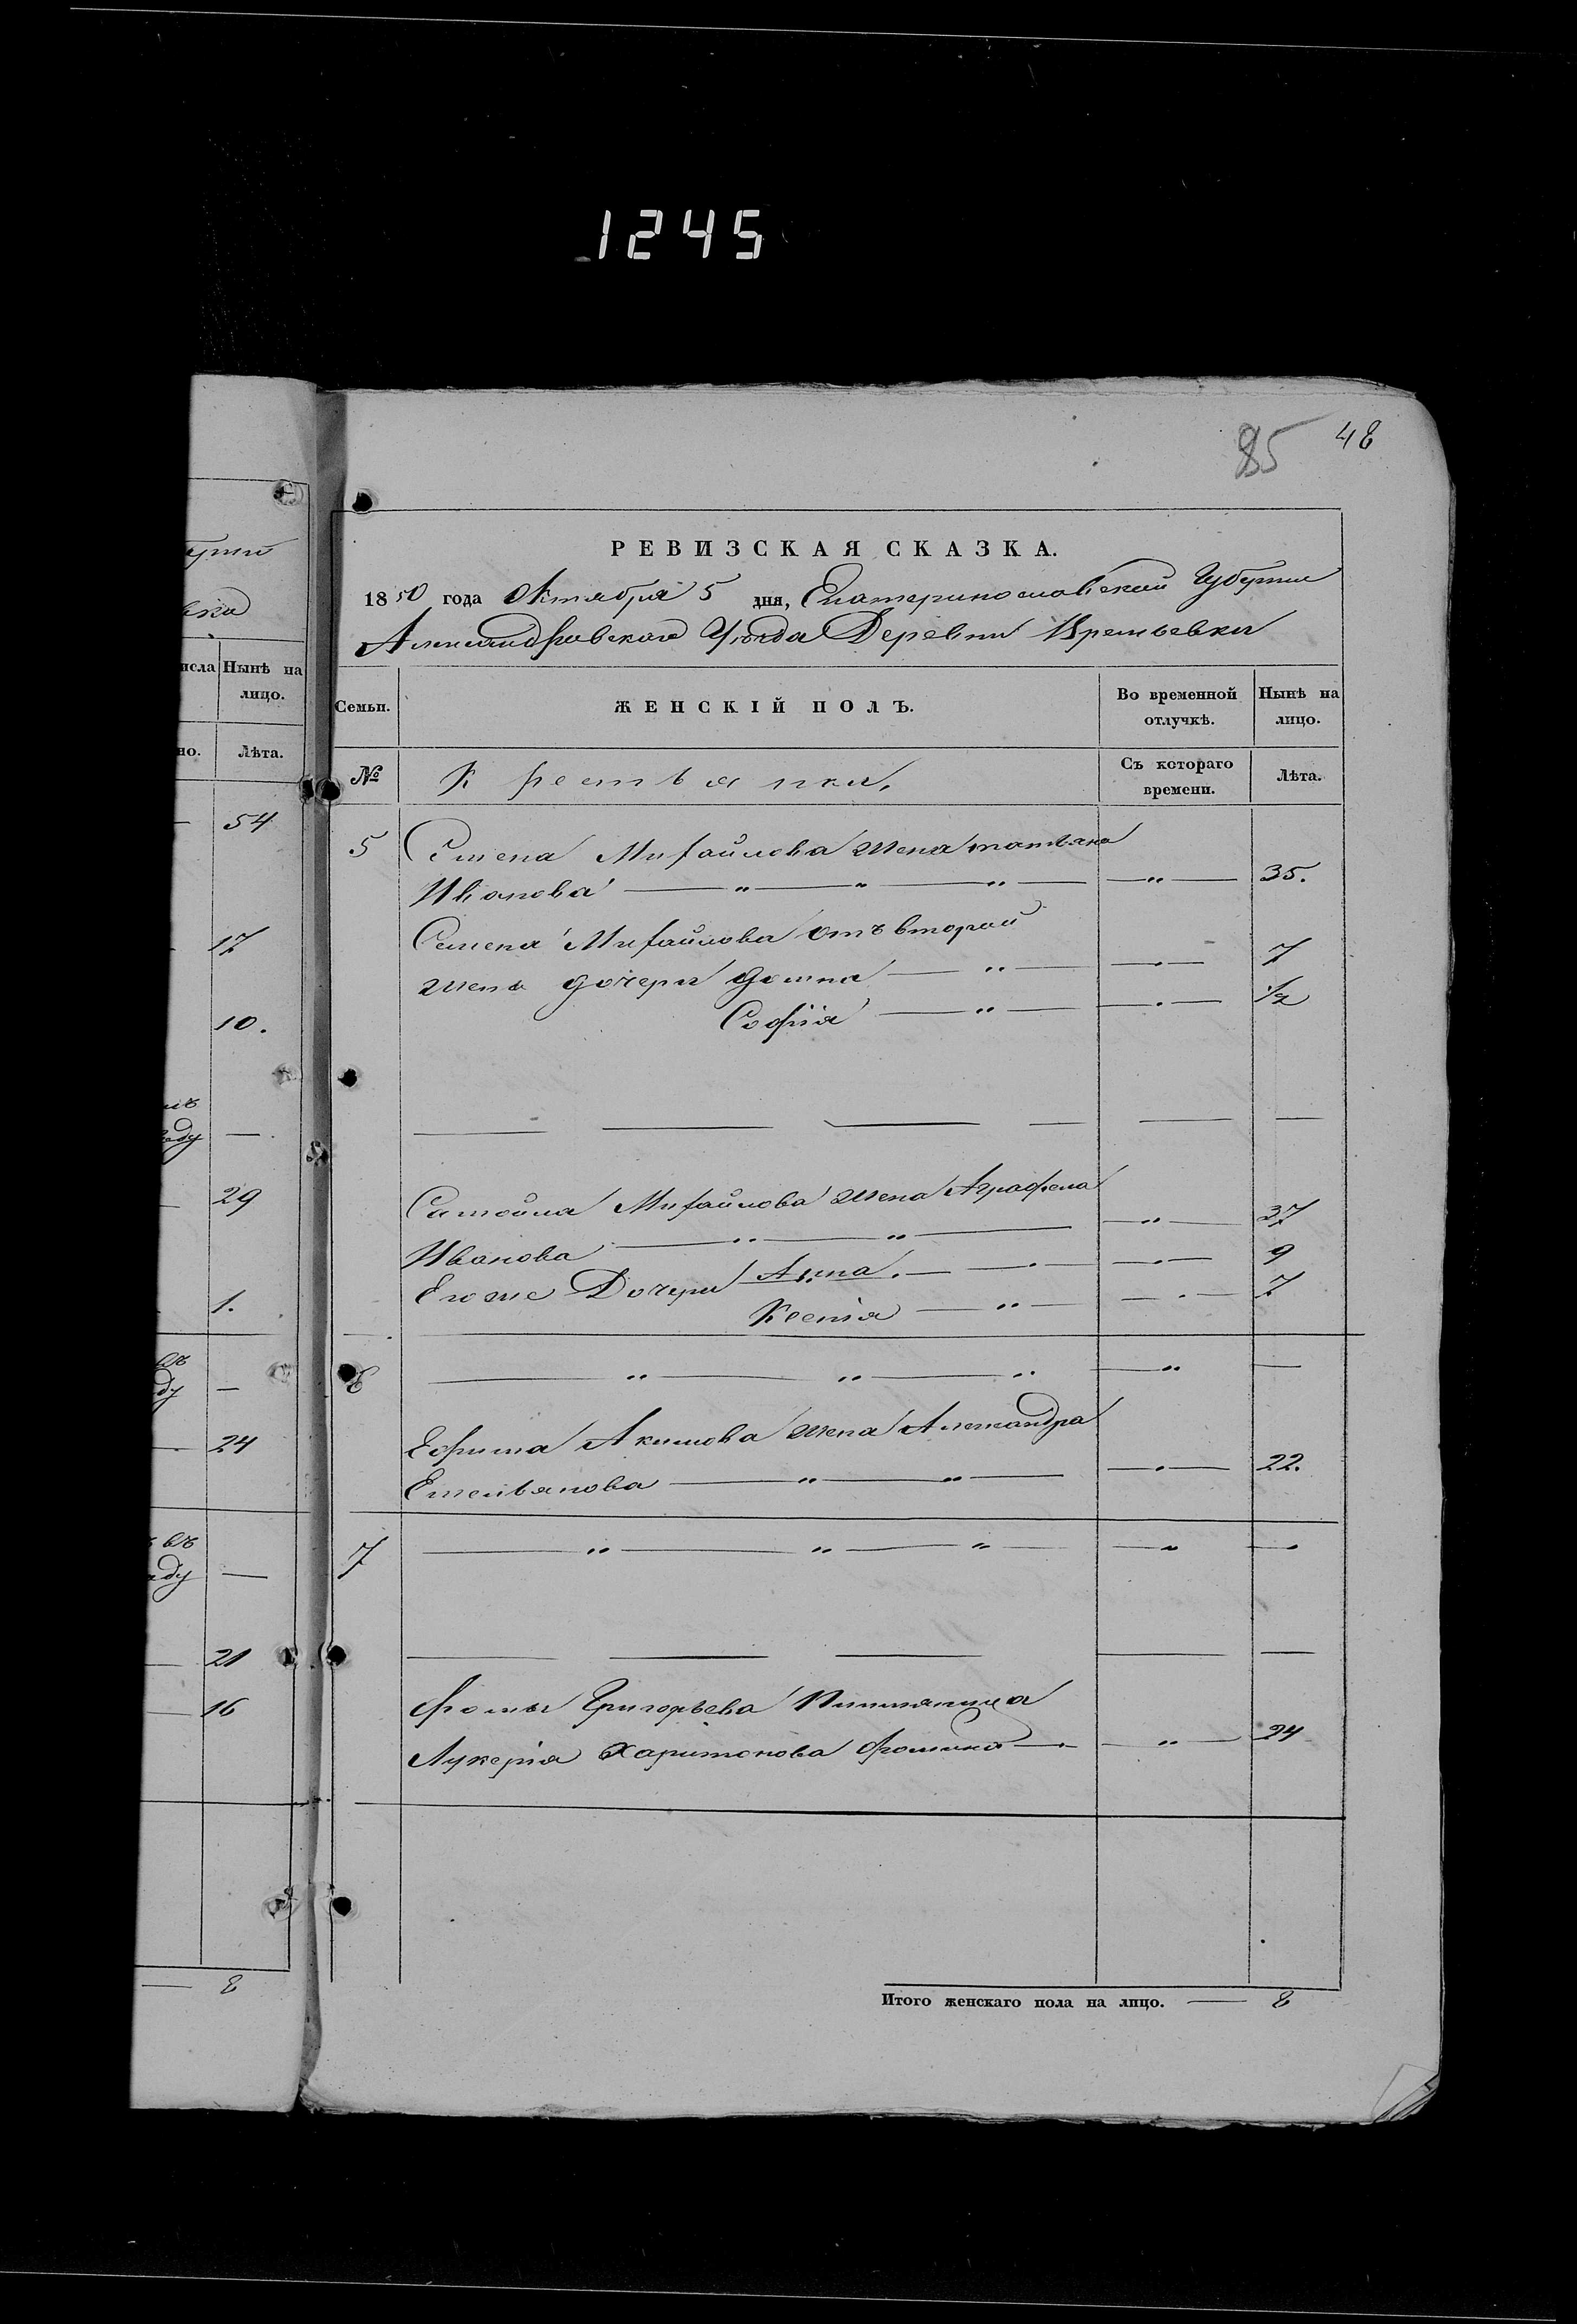 1245
85 48
РЕВИЗСКАЯ СКАЗКА.
1850 года Октября 5 дня, Екатеринославской Губернии
Александровскаго Уѣзда Деревни Времьевки
исла Нынѣ на лицо.
но. Лѣта.
Семьи. ЖЕНСКІЙ ПОЛЪ. Во временной отлучкѣ. Нынѣ на лицо.
№ Крестьянки. Съ котораго времени. Лѣта.
54
17
10.
29
1.
24
21
16
8
5 Семена Михайлова жена татьяна
Иванова 35.
Семена Михайлова отъ второй
жены дочери Домна 7
Софія 1/2
Самойла Михайлова жена Аграфена
Иванова 37
Егоже Дочери Анна 9
Ксенія 7
6
Ефима Акимова жена Александра
Емельянова 22.
7
Фомы Григорьева
Лукерія Харитонова Фомина 24
Итого женскаго пола на лицо. 8